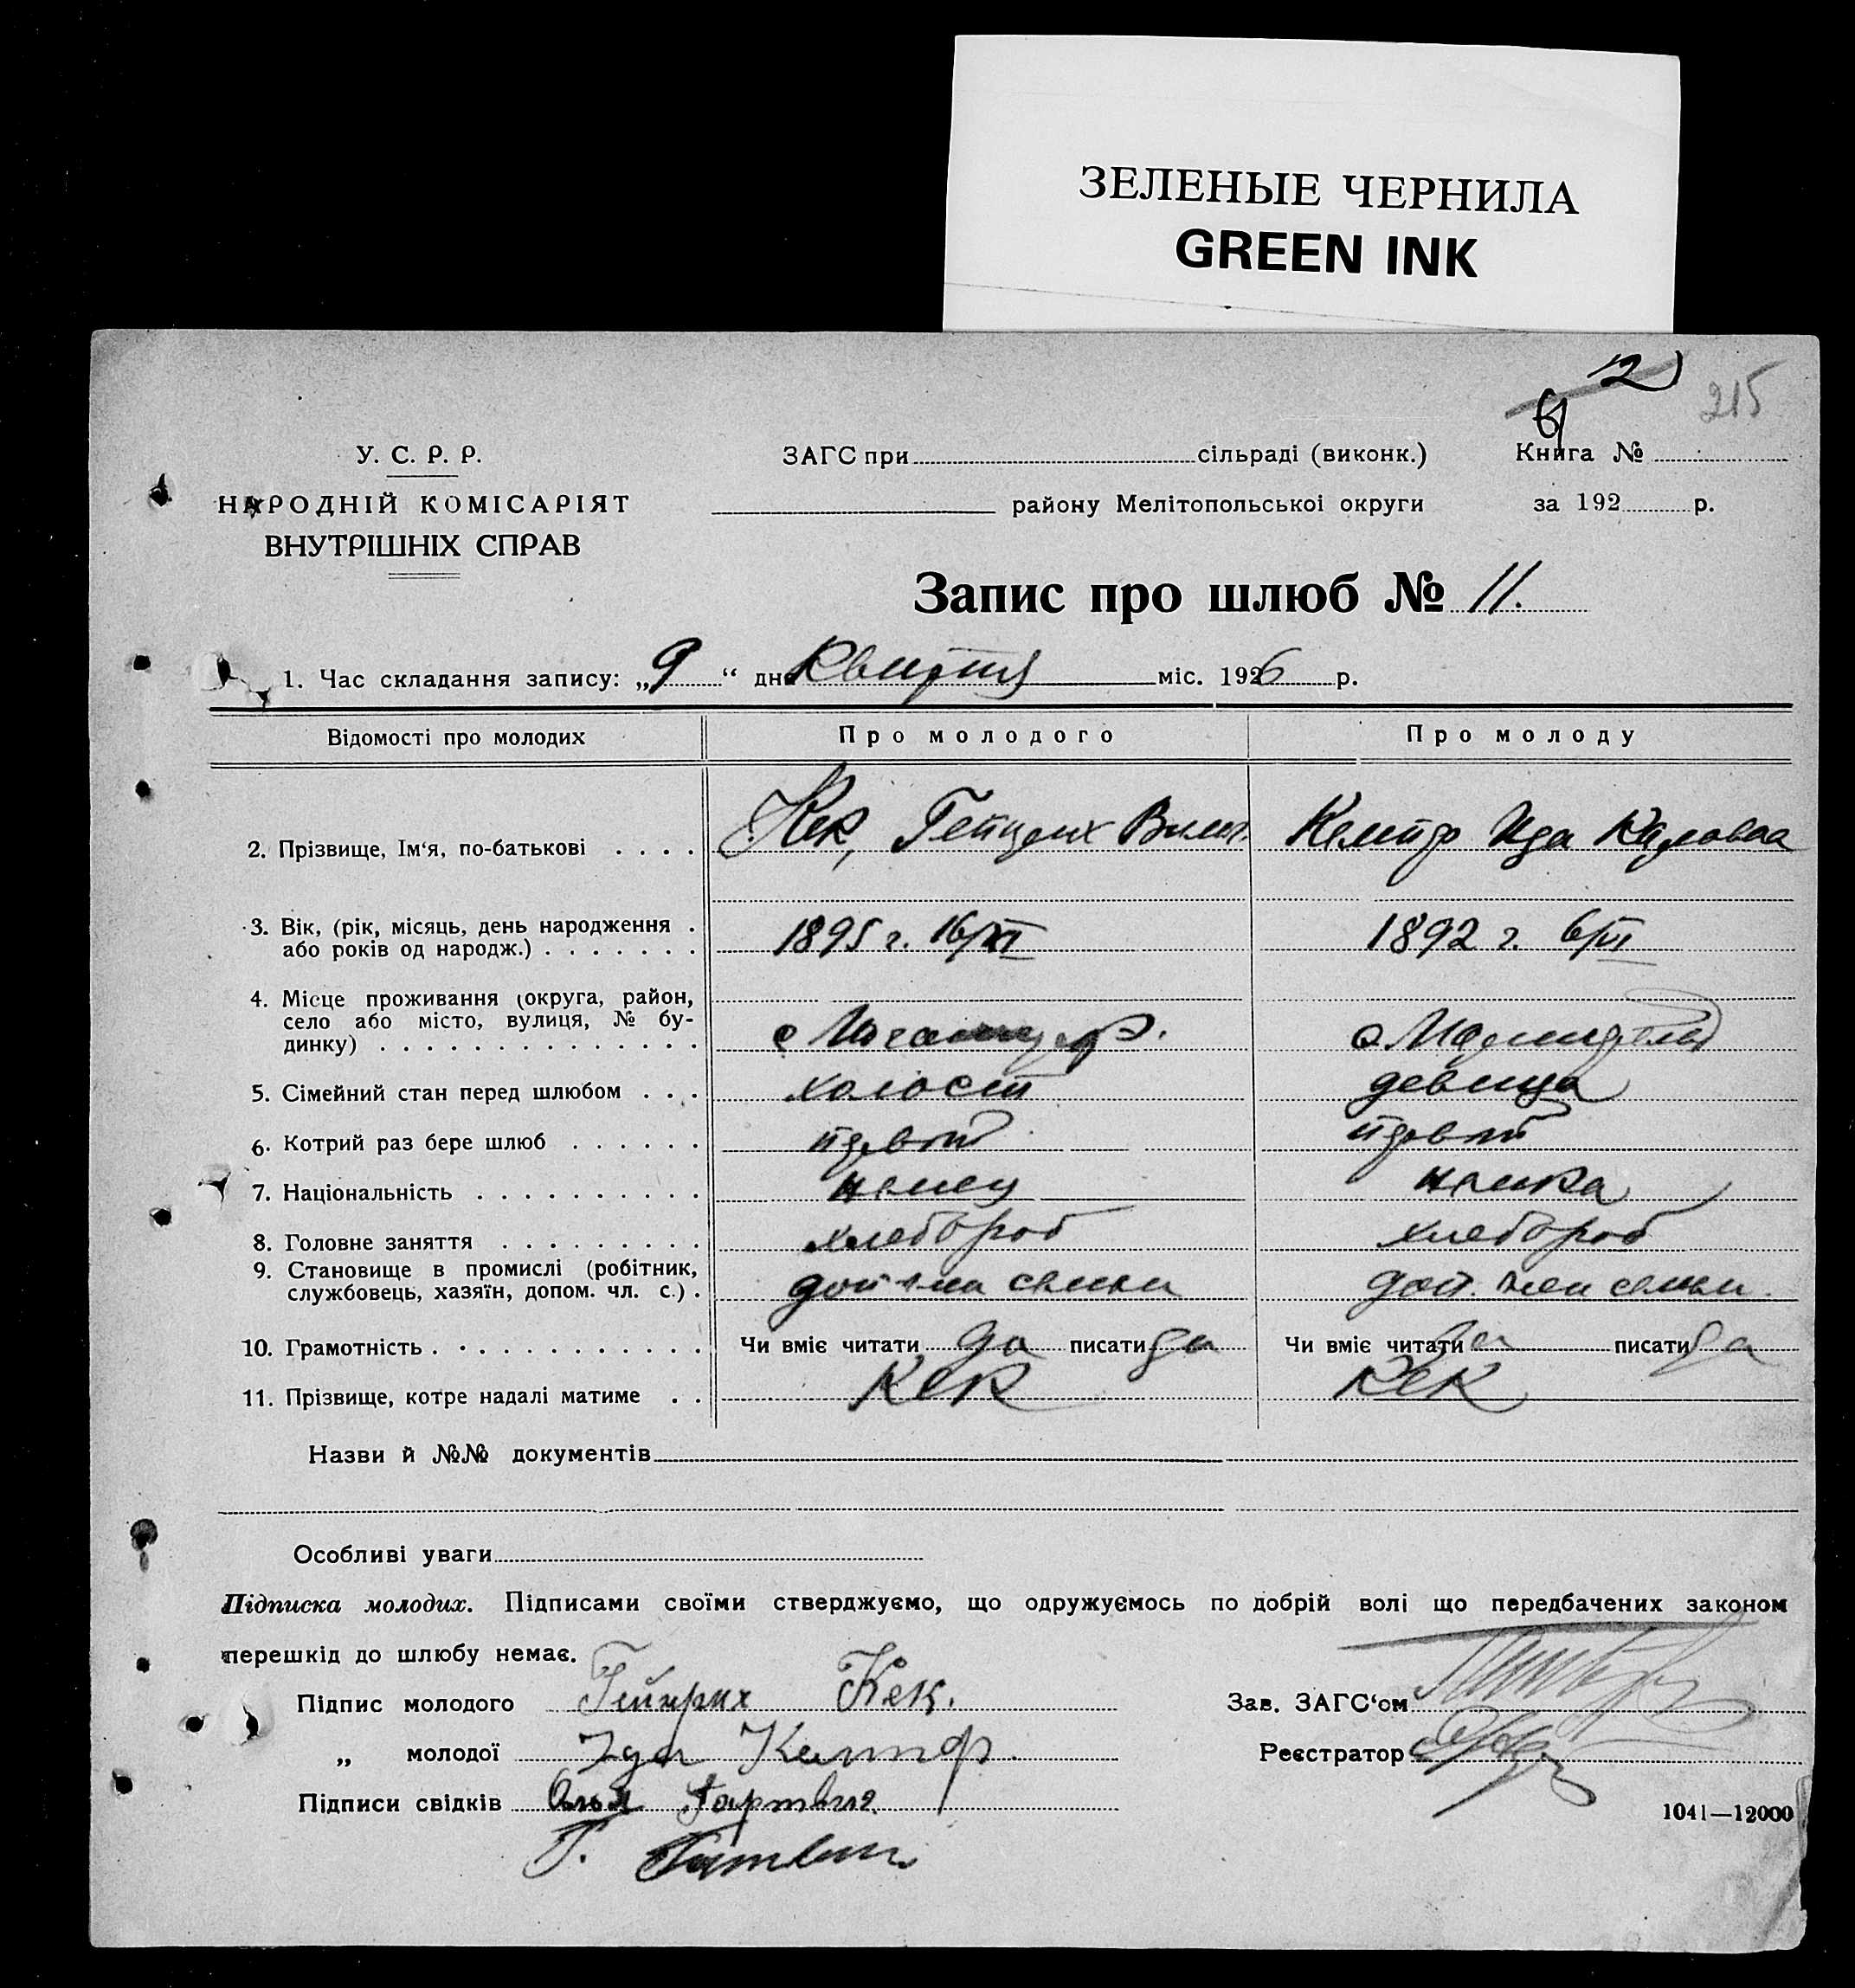 ЗЕЛЕНЫЕ ЧЕРНИЛА
GREEN INK
12
215
6
У. С. Р. Р.
НАРОДНІЙ КОМІСАРІЯТ
ВНУТРІШНІХ СПРАВ
ЗАГС при сільраді (виконк.)
району Мелітопольської округи
Книга №
за 192 р.
Запис про шлюб № 11.
1. Час складання запису: „9“ дня Квитня міс. 1926 р.
Відомості про молодих Про молодого Про молоду
2. Прізвище, Ім‘я, по-батькові . . . . Кек, Гейнрих Вильг. Кемпф Ида Карловна
3. Вік, (рік, місяць, день народження .
або років од народж.) . . . . . . . 1895 г. 16/XI 1892 г. 6/VI
4. Місце проживання (округа, район,
село або місто, вулиця, № бу-
динку) . . . . . . . . . . . . . . с с
5. Сімейний стан перед шлюбом . . . холост девица
6. Котрий раз бере шлюб . . . . . . первый первый
7. Національність . . . . . . . . . . немец немка
8. Головне заняття . . . . . . . . . хлебороб хлебороб
9. Становище в промислі (робітник,
службовець, хазяїн, допом. чл. с.) . доп член семьи доп. член семьи.
10. Грамотність . . . . . . . . . . . . Чи вміє читати да писати да Чи вміє читати да писати да
11. Прізвище, котре надалі матиме . . Кек Кек
Назви й №№ документів
Особливі уваги
Підписка молодих. Підписами своїми стверджуємо, що одружуємось по добрій волі що передбачених законом
перешкід до шлюбу немає.
Підпис молодого Гейнрих Кек.
Зав. ЗАГС‘ом
„ молодої Ида Кемпф.
Реєстратор
Підписи свідків
1041—12000
Г.